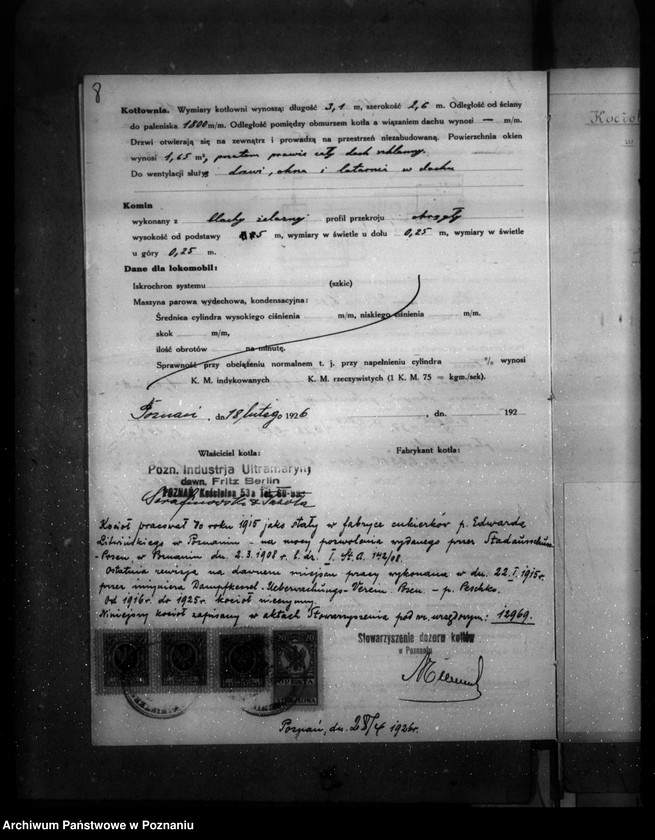 8
Kotłownia. Wymiary kotłowni wynoszą: długość 3,1 m, szerokość 2,6 m. Odległość od ściany
do paleniska 1800 m/m. Odległość pomiędzy obmurzem kotła a wiązaniem dachu wynosi — m/m.
Drzwi otwierają się na zewnątrz i prowadzą na przestrzeń niezabudowaną. Powierzchnia okien
wynosi 1,65 m², poratem prawie cały dach szklanny.
Do wentylacji służy drzwi, okna i latarnia w dachu
Komin
wykonany z blachy żelaznej profil przekroju okrągły
wysokość od podstawy m, wymiary w świetle u dołu 0,25 m, wymiary w świetle
u góry 0,25 m.
Dane dla lokomobil:
Iskrochron systemu (szkic)
Maszyna parowa wydechowa, kondensacyjna:
Średnica cylindra wysokiego ciśnienia m/m, niskiego ciśnienia m/m.
skok m/m,
ilość obrotów na minutę.
Sprawność przy obciążeniu normalnem t. j. przy napełnieniu cylindra % wynosi
K. M. indykowanych K. M. rzeczywistych (1 K. M. 75 = kgm./sek).
Poznań, dn. 18 lutego 1926 , dn. 192
Właściciel kotła: Fabrykant kotła:
Pozn. Industrja Ultramaryny
dawn. Fritz Berlin
POZNAŃ, Kościelna 53a Tel.
Kocioł pracował do roku 1915 jako stały w fabryce cukierków p. Edwarda
w Poznaniu na mocy pozwolenia wydanego przez Stadtausschuss
-Posen w Poznaniu dn. 2.3.1908 r. l. dz. I. St. A. 142/08.
Ostatnia rewizja na dawnem miejscu pracy wykonana w dn. 22.I.1915 r.
przez inżyniera Dampfkessel-Ueberwachungs-Verein Posen – p. Peschko.
Od 1916 r. do 1925 r. kocioł nieczynny.
Niniejszy kocioł zapisany w aktach Stowarzyszenia pod nr. urzędowym: 12969.
Stowarzyszenie dozoru kotłów
w Poznaniu
20 20
Poznań, dn. 1926 r.
Kocioł
Archiwum Państwowe w Poznaniu